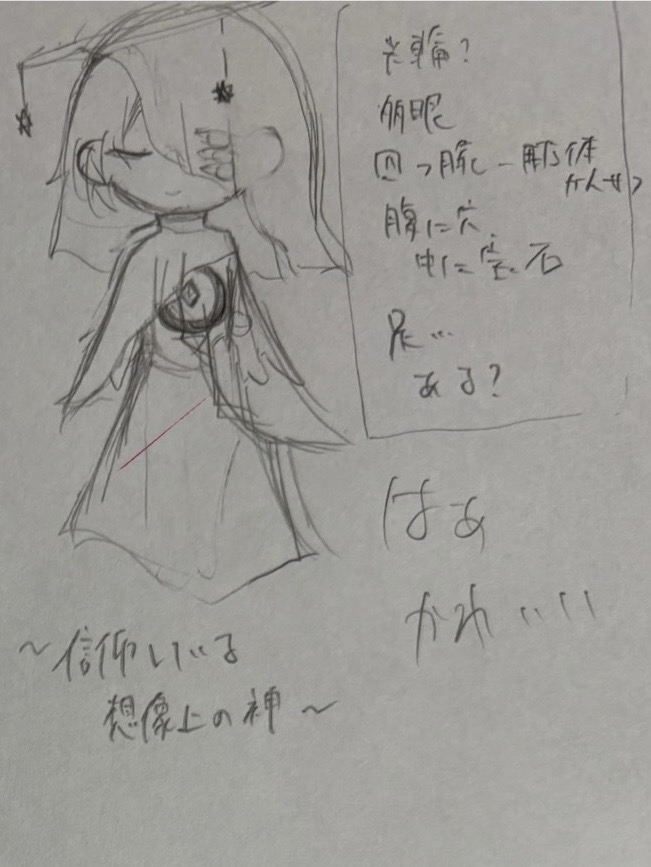 光輪?
多眼
四つ腕
腹に穴.
中に宝石
足…
ある?
はぁ
かわいい
~信仰している
想像上の神~